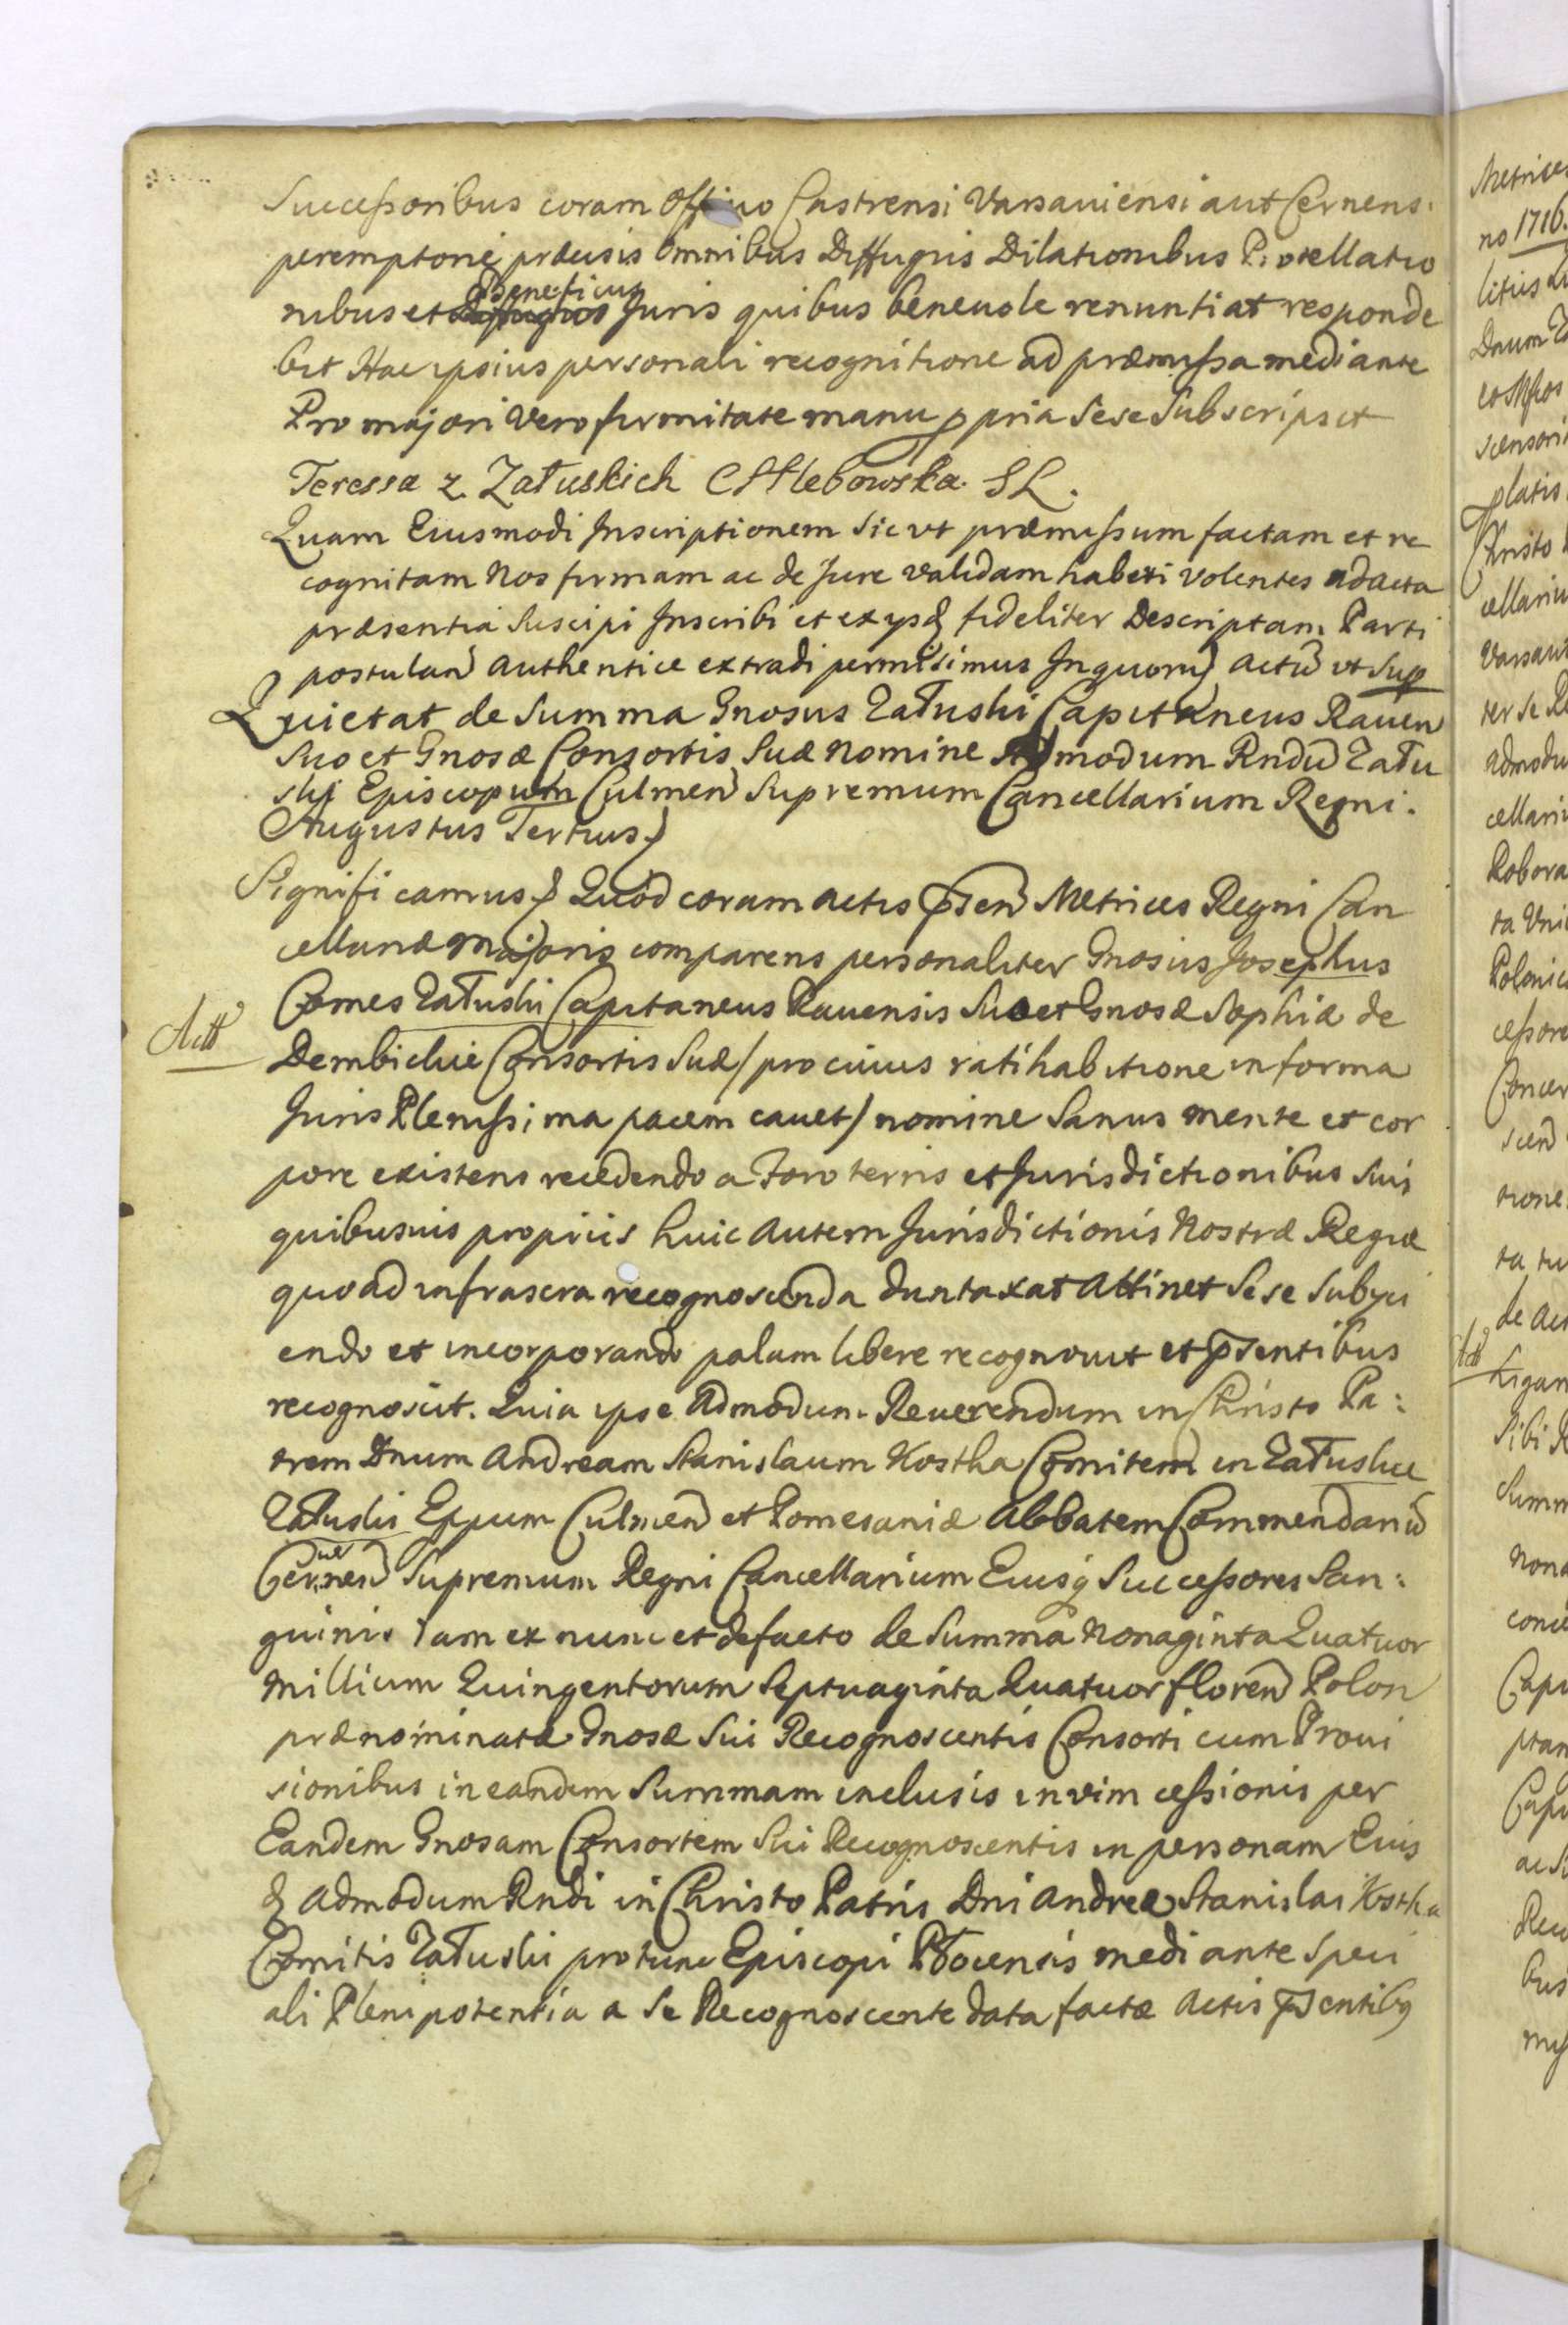 Successoribus coram Officio Castrensi Varsaviensi aut Cernens.
peremptorie præcisis omnibus Diffugiis Dilationibus Protellatio
nibus et Beneficiis Juris quibus benevole renuntiat responde
bit Hac ipsius personali recognitione ad præmissa mediante
Pro majori vero firmitate manu ppria sese subscripsit
Teressa z Załuskich CHlebowska. SL.
Quam Eiusmodi Inscriptionem sicut præmissum factam et re
cognitam Nos firmam ac de Jure validam haberi volentes ad acta
præsentia suscipi Inscribi et ex ysd fideliter Descriptam Parti
postulan authentice extradi permisimus In quorum Actu ut Sup
Quietat de Summa Gnosus Załuski Capitaneus Raven
suo et Gnosæ Consortis suæ nomine Admodum Rndu Zału
skj Episcopum Culmen Supremum Cancellarium Regni.
Augustus Tertius
Significamus Quod coram actis psen Metrices Regni Can
cellariæ Majoris comparens personaliter Gnosus Josephus
Comes Załuski Capitaneus Ravensis suo et Gnosæ Sophiæ de
Actt
Dembickie Consortis suæ / pro cuius ratihabitione in forma
Juris Plenissima pacem cavet / nomine sanus mente et cor
pore existens recedendo a Foro terris et Jurisdictionibus suis
quibusvis propriis huic autem Jurisdictionis Nostræ Regiæ
quoad infrascra recognoscenda duntaxat attinet sese subyci
endo et incorporando palam libere recognovit et psentibus
recognoscit. Quia ipse Admodum Reverendum in Christo Pa:
trem Dnum Andream Stanislaum Kostka Comitem in Załuskie
Załuski Eppum Culmen et Pomesaniæ Abbatem Commendariu
Cervinen Supremum Regni Cancellarium Eiusq Successores San:
guinis iam ex nunc et de facto de Summa Nonaginta Quatuor
Millium Quingentorum Septuaginta Quatuor floren Polon
prænominatæ Gnosæ sui Recognoscentis Consorti cum Provi
sionibus in eandem Summam inclusis in vim cessionis per
Eandem Gnosam Consortem sui Recognoscentis in personam Eius
d Admodum Rndi in Christo Patris Dni Andreæ Stanislai Kostka
Comitis Załuski protunc Episcopi Płocensis mediante speci
ali Plenipotentia a se Recognoscente data factæ Actis psentibq